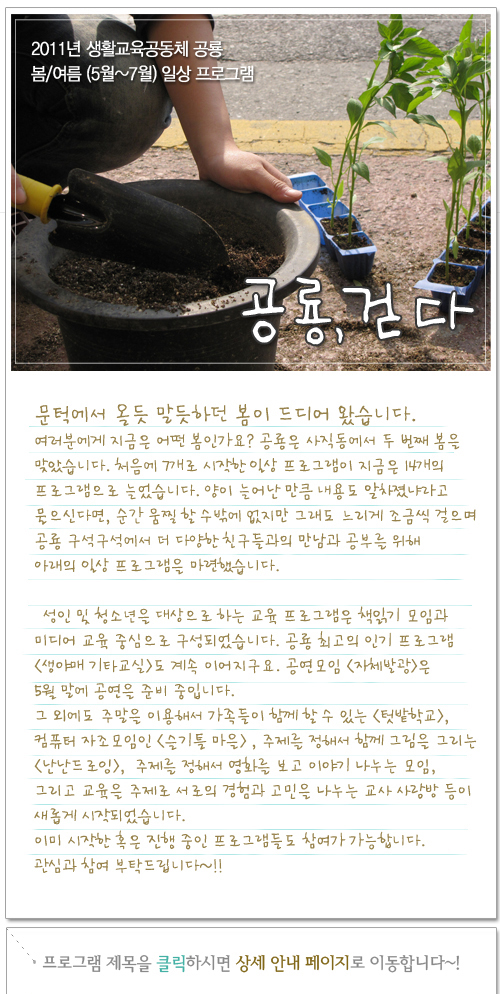 2011년 생활교육공동체 공룡
봄/여름 (5월~7월) 일상 프로그램
공룡, 걷다
문턱에서 올듯 말듯하던 봄이 드디어 왔습니다.
여러분에게 지금은 어떤 봄인가요? 공룡은 사직동에서 두 번째 봄을
맞았습니다. 처음에 7개로 시작한 일상 프로그램이 지금은 14개의
프로그램으로 늘었습니다. 양이 늘어난 만큼 내용도 알차졌냐라고
물으신다면, 순간 움찔 할 수밖에 없지만 그래도 느리게 조금씩 걸으며
공룡 구석구석에서 더 다양한 친구들과의 만남과 공부를 위해
아래의 일상 프로그램을 마련했습니다.
성인 및 청소년을 대상으로 하는 교육 프로그램은 책읽기 모임과
미디어 교육 중심으로 구성되었습니다. 공룡 최고의 인기 프로그램
<생야매 기타교실>도 계속 이어지구요. 공연모임 <자체발광>은
5월 말에 공연을 준비 중입니다.
그 외에도 주말을 이용해서 가족들이 함께 할 수 있는 <텃밭학교>,
컴퓨터 자조모임인 <슬기틀 마은> , 주제를 정해서 함께 그림을 그리는
<난난드로잉>, 주제를 정해서 영화를 보고 이야기 나누는 모임,
그리고 교육을 주제로 서로의 경험과 고민을 나누는 교사 사랑방 등이
새롭게 시작되었습니다.
이미 시작한 혹은 진행 중인 프로그램들도 참여가 가능합니다.
관심과 참여 부탁드립니다~!!
프로그램 제목을 클릭하시면 상세 안내 페이지로 이동합니다~!